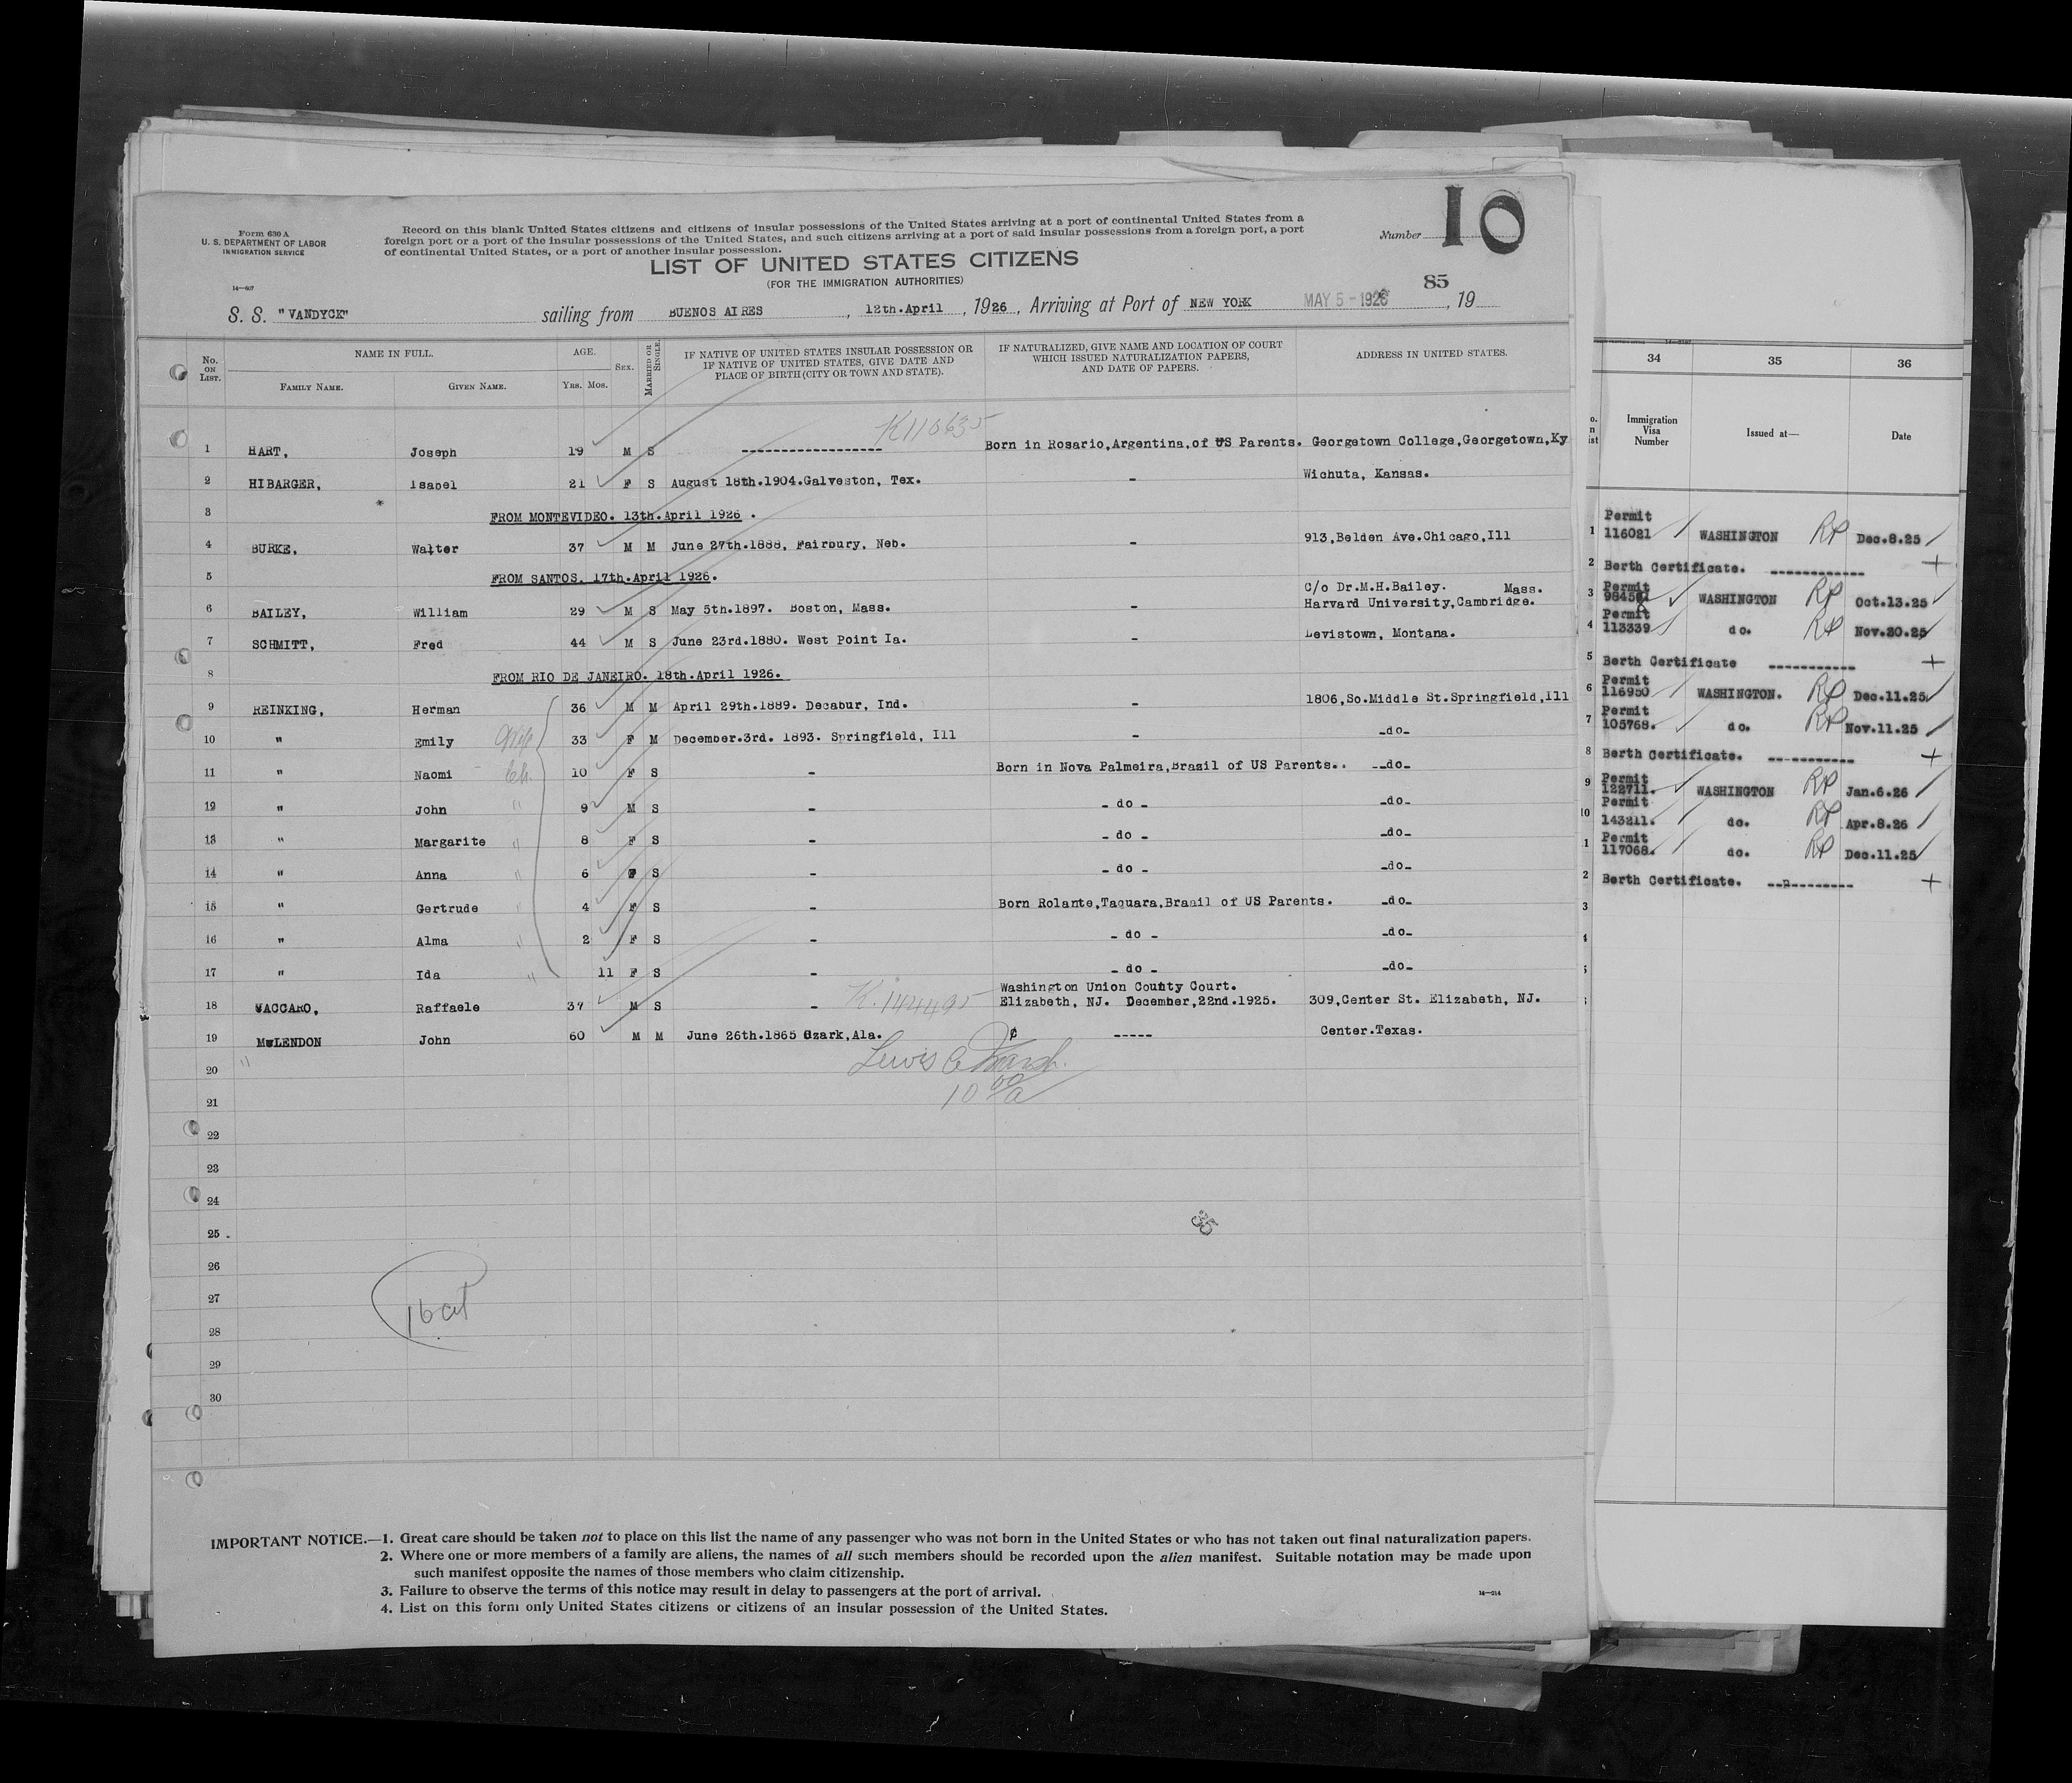 Form 630 A
U. S. DEPARTMENT OF LABOR
IMMIGRATION SERVICE
14—607
Record on this blank United States citizens and citizens of insular possessions of the United States arriving at a port of continental United States from a
foreign port or a port of the insular possessions of the United States, and such citizens arriving at a port of said insular possessions from a foreign port, a port
of continental United States, or a port of another insular possession.
Number 10
LIST OF UNITED STATES CITIZENS
(FOR THE IMMIGRATION AUTHORITIES)
85
S. S. "VANDYCK" sailing from BUENOS AIRES, 12th.April, 1926, Arriving at Port of NEW YORK MAY 5-1926, 19
No. ON LIST. NAME IN FULL. FAMILY NAME. GIVEN NAME. AGE. Yrs. Mos. SEX. MARRIED OR SINGLE. IF NATIVE OF UNITED STATES INSULAR POSSESSION OR IF NATIVE OF UNITED STATES, GIVE DATE AND PLACE OF BIRTH (CITY OR TOWN AND STATE). IF NATURALIZED, GIVE NAME AND LOCATION OF COURT WHICH ISSUED NATURALIZATION PAPERS, AND DATE OF PAPERS. ADDRESS IN UNITED STATES.
K110635
1 HART, Joseph 19 M S ------------------ Born in Rosario,Argentina,of US Parents. Georgetown College,Georgetown,Ky
2 HIBARGER, Isabel 21 F S August 18th.1904.Galveston, Tex. - Wichuta, Kansas.
*
3 FROM MONTEVIDEO. 13th.April 1926 .
4 BURKE, Walter 37 M M June 27th.1888, Fairbury, Neb. - 913,Belden Ave.Chicago,Ill
5 FROM SANTOS. 17th.April 1926.
C/o Dr.M.H.Bailey. Mass.
6 BAILEY, William 29 M S May 5th.1897. Boston, Mass. - Harvard University,Cambridge.
7 SCHMITT, Fred 44 M S June 23rd.1880. West Point Ia. - Levistown, Montana.
8 FROM RIO DE JANEIRO. 18th.April 1926.
9 REINKING, Herman 36 M M April 29th.1889. Decabur, Ind. - 1806,So.Middle St.Springfield,Ill
10 " Emily Wife 33 F M December.3rd. 1893. Springfield, Ill - -do-
11 " Naomi Ch. 10 F S - Born in Nova Palmeira,Brazil of US Parents.. -do-
12 " John " 9 M S - - do - -do-
13 " Margarite " 8 F S - - do - -do-
14 " Anna " 6 F S - - do - -do-
15 " Gertrude " 4 F S - Born Rolante,Taquara,Braail of US Parents. -do-
16 " Alma " 2 F S - - do - -do-
17 " Ida " 11 F S - - do - -do-
Washington Union County Court.
18 VACCARO, Raffaele 37 M S - K.144495 Elizabeth, NJ. December,22nd.1925. 309,Center St. Elizabeth, NJ.
19 McLENDON John 60 M M June 26th.1865 Ozark,Ala. ¢ ----- Center.Texas.
20 "
Lewis
21
10 00/a
22
23
24
25
35
26
27
16 cit
28
29
30
IMPORTANT NOTICE.—1. Great care should be taken not to place on this list the name of any passenger who was not born in the United States or who has not taken out final naturalization papers.
2. Where one or more members of a family are aliens, the names of all such members should be recorded upon the alien manifest. Suitable notation may be made upon
such manifest opposite the names of those members who claim citizenship.
3. Failure to observe the terms of this notice may result in delay to passengers at the port of arrival.
4. List on this form only United States citizens or citizens of an insular possession of the United States.
14—214
34 35 36
Immigration Visa Number Issued at— Date
Permit
1 116021 WASHINGTON RP Dec.8.25
2 Berth Certificate. ------------ +
3 Permit
WASHINGTON RP Oct.13.25
Permit
4 113339 do. RP Nov.30.25
5 Berth Certificate ----------- +
Permit
6 116950 WASHINGTON. RP Dec.11.25
Permit
7 105768. do. RP Nov.11.25
8 Berth Certificate. ----------- +
Permit
9 122711. WASHINGTON RP Jan.6.26
Permit
10 143211. do. RP Apr.8.26
Permit
1 117068. do. RP Dec.11.25
2 Berth Certificate. ----------- +
3
4
5